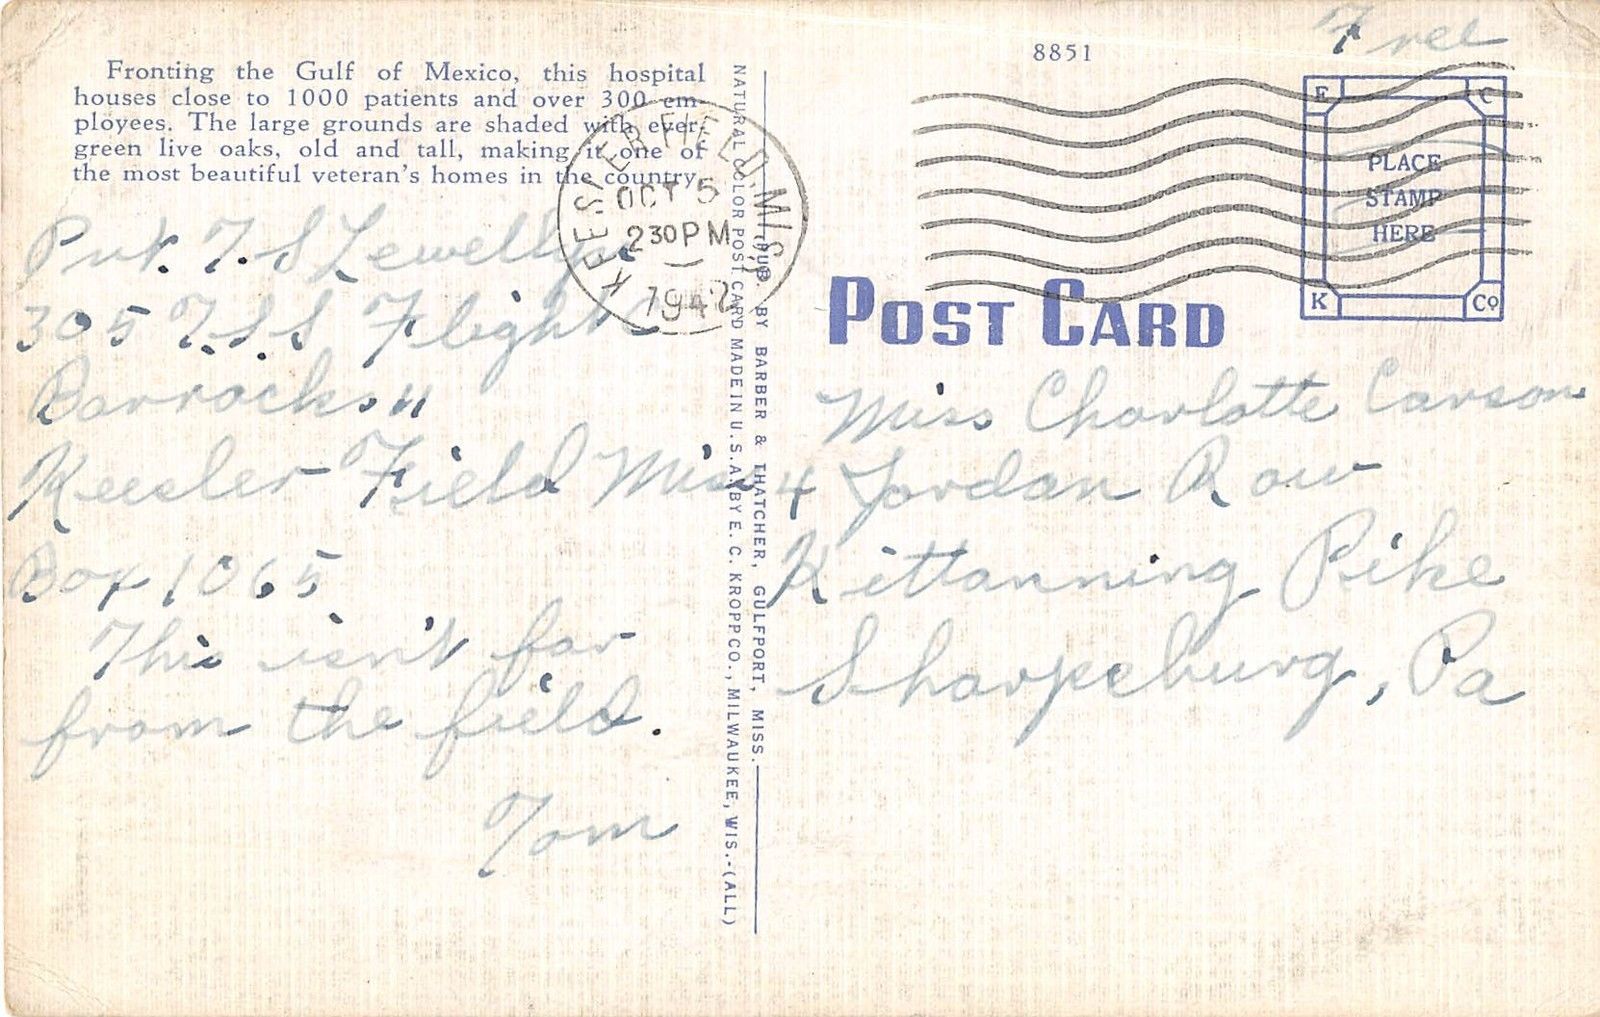 Fronting the Gulf of Mexico, this hospital
houses close to 1000 patients and over 300 em-
ployees. The large grounds are shaded with ever-
green live oaks, old and tall, making it one of
the most beautiful veteran's homes in the country.
Pvt. T. S Lewellyn
305 T.S.S Flight
Barracks 11
Keesler Field Miss
Box 1065
This isn't far
from the field.
Tom
KEESLER FIELD, MISS.
OCT 5
2 30 PM
1942
NATURAL COLOR POST CARD MADE IN U.S.A. BY E. C. KROPP CO., MILWAUKEE, WIS.-(ALL)
PUB. BY BARBER & THATCHER, GULFPORT, MISS.
8851
Free
E C
PLACE
STAMP
HERE
K Co
POST CARD
Miss Charlotte Carson
4 Jordan Row
Kittanning Pike
Sharpsburg, Pa